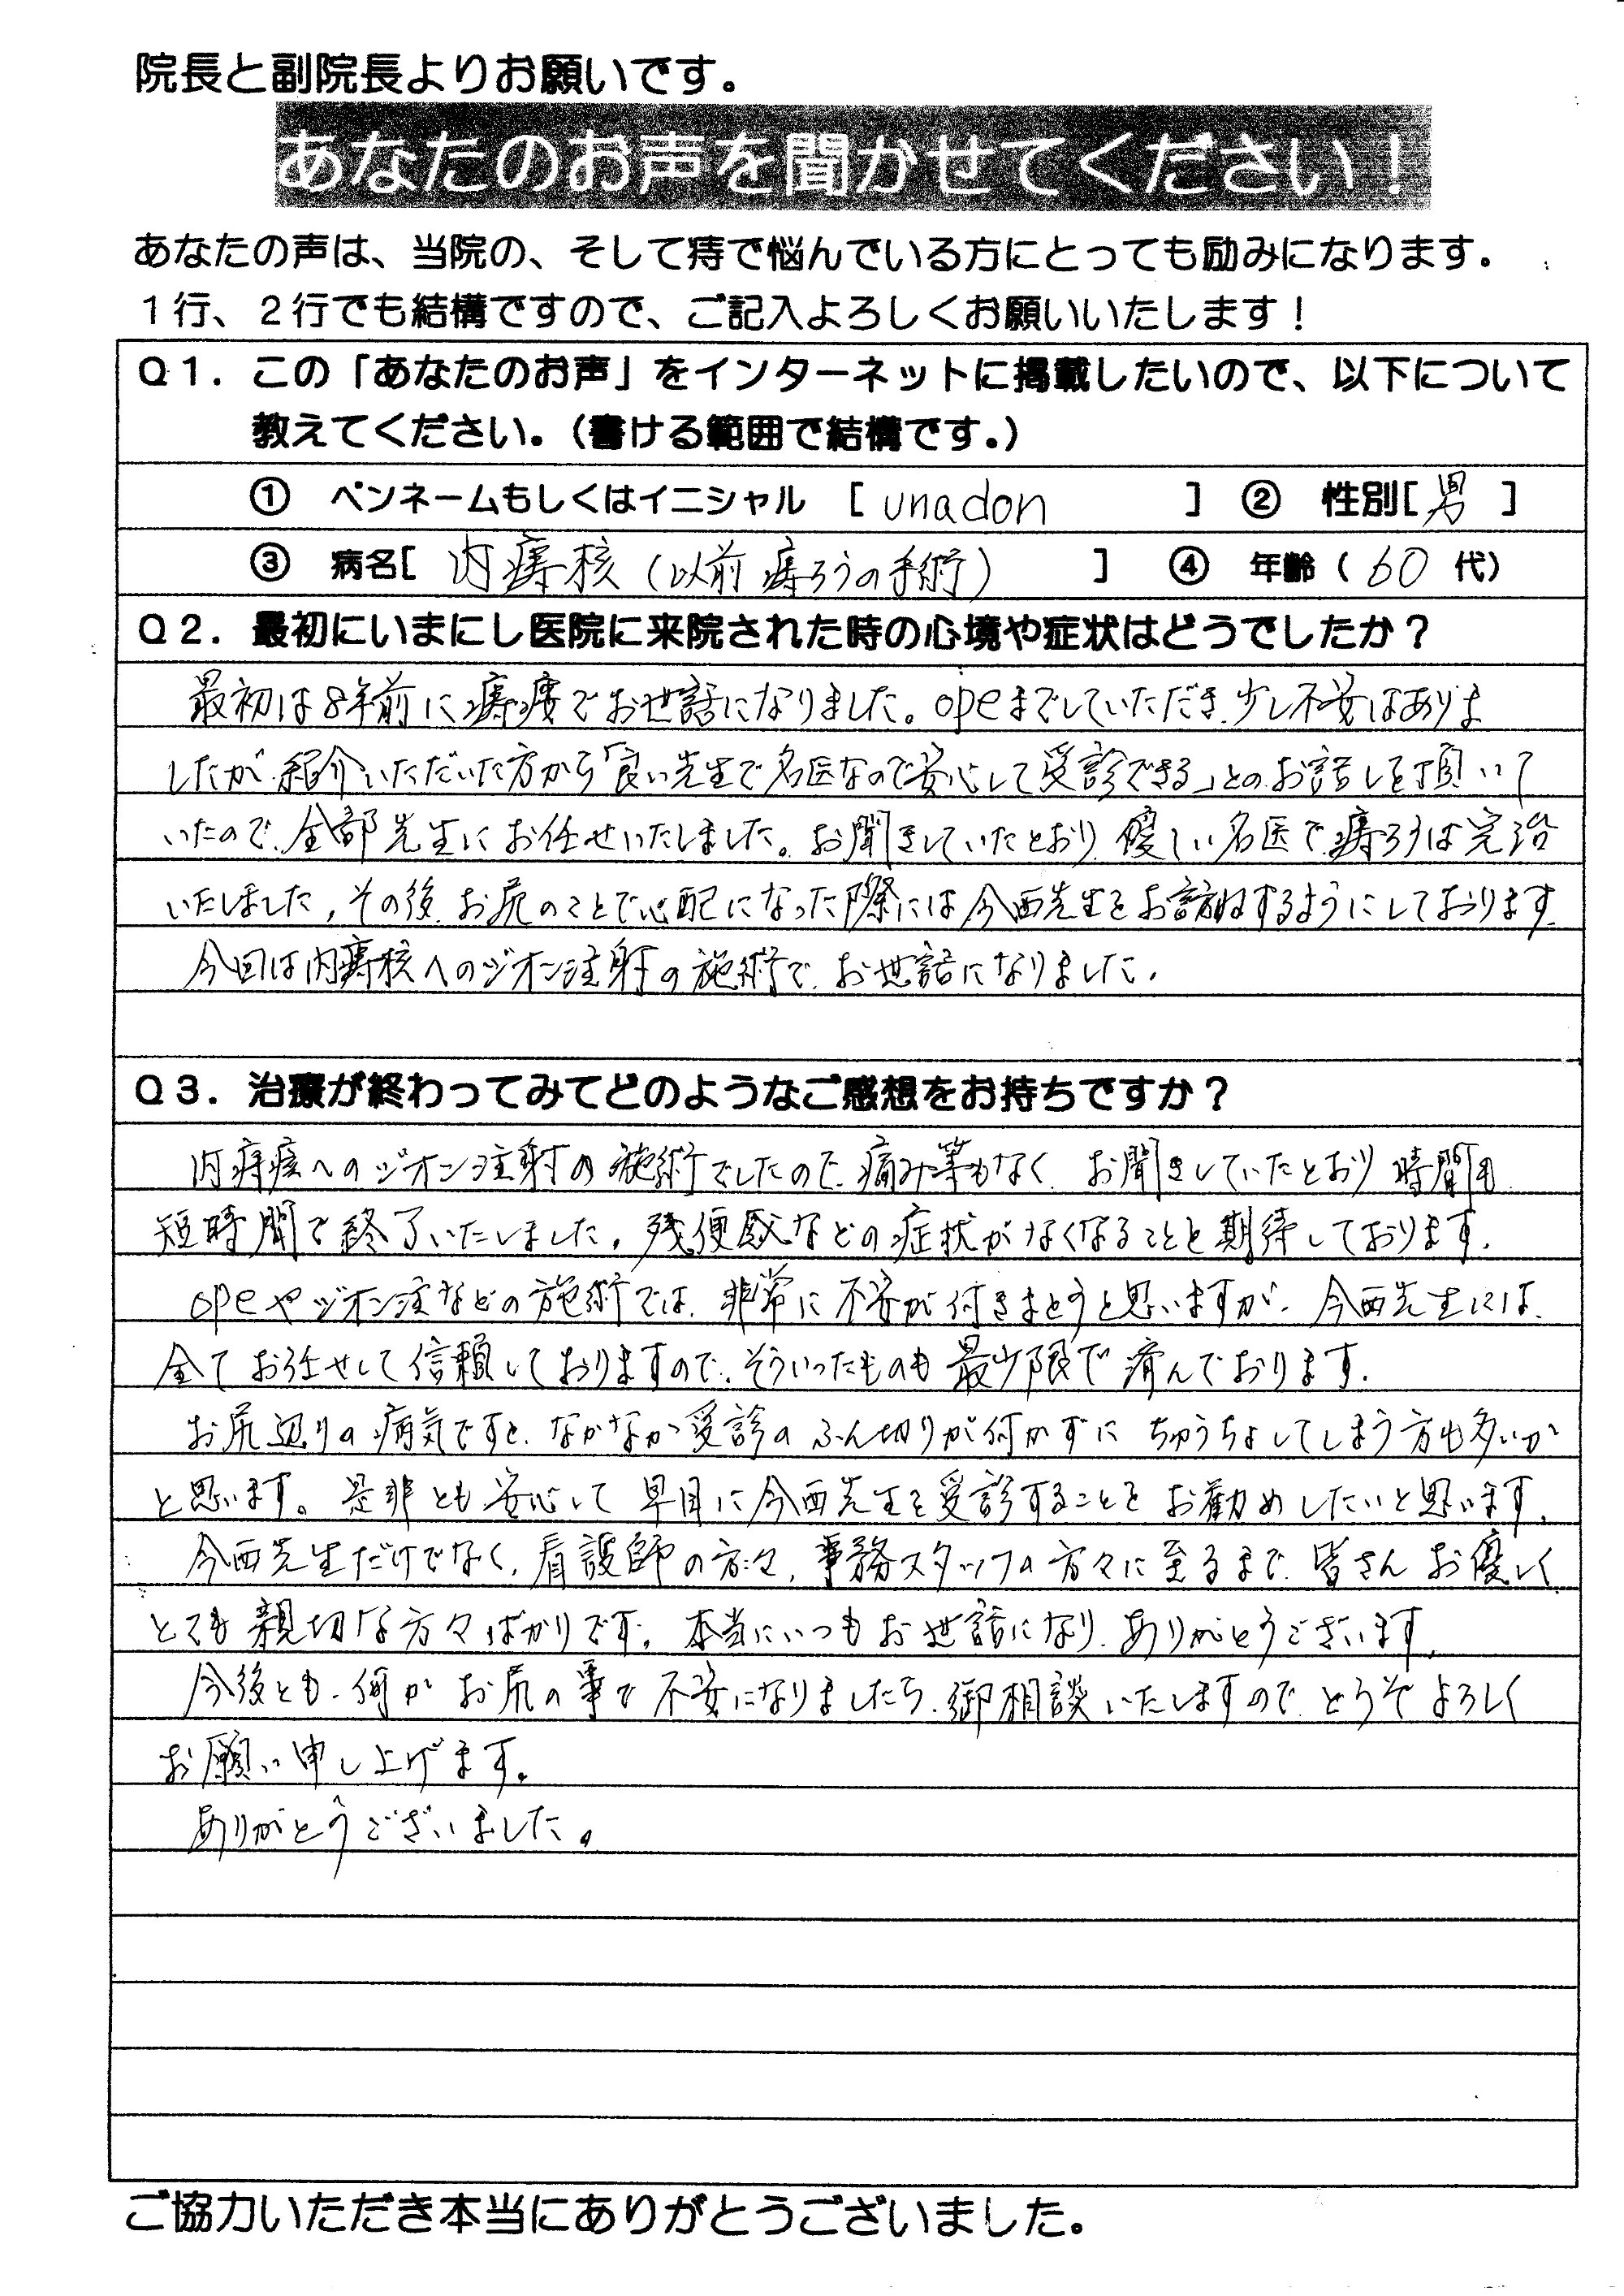 院長と副院長よりお願いです。
あなたのお声を聞かせてください！
あなたの声は、当院の、そして痔で悩んでいる方にとっても励みになります。
１行、２行でも結構ですので、ご記入よろしくお願いいたします！
Ｑ１．この「あなたのお声」をインターネットに掲載したいので、以下について
教えてください。（書ける範囲で結構です。）
① ペンネームもしくはイニシャル [ unadon ] ② 性別[ 男 ]
③ 病名[ 内痔核（以前痔ろうの手術） ] ④ 年齢（ 60 代）
Ｑ２．最初にいまにし医院に来院された時の心境や症状はどうでしたか？
最初は8年前に痔瘻でお世話になりました。opeまでしていただき、少し不安はありま
したが、紹介いただいた方から「良い先生で名医なので安心して受診できる」とのお話しを頂いて
いたので、全部先生にお任せいたしました。お聞きしていたとおり、優しい名医で、痔ろうは完治
いたしました。その後、お尻のことで心配になった際には今西先生をお訪ねするようにしております。
今回は内痔核へのジオン注射の施術で、お世話になりました。
Ｑ３．治療が終わってみてどのようなご感想をお持ちですか？
内痔核へのジオン注射の施術でしたので、痛み等もなく、お聞きしていたとおり時間も
短時間で終了いたしました。残便感などの症状がなくなることを期待しております。
opeやジオン注などの施術では、非常に不安が付きまとうと思いますが、今西先生には、
全てお任せして信頼しておりますので、そういったものも最少限で済んでおります。
お尻辺りの病気ですと、なかなか受診のふん切りが付かずに ちゅうちょしてしまう方も多いか
と思います。是非とも安心して早目に今西先生を受診することをお勧めしたいと思います。
今西先生だけでなく、看護師の方々、事務スタッフの方々に至るまで、皆さんお優しく
とても親切な方々ばかりです。本当にいつもお世話になり、ありがとうございます。
今後とも、何かお尻の事で不安になりましたら、御相談いたしますので、どうぞよろしく
お願い申し上げます。
ありがとうございました。
ご協力いただき本当にありがとうございました。